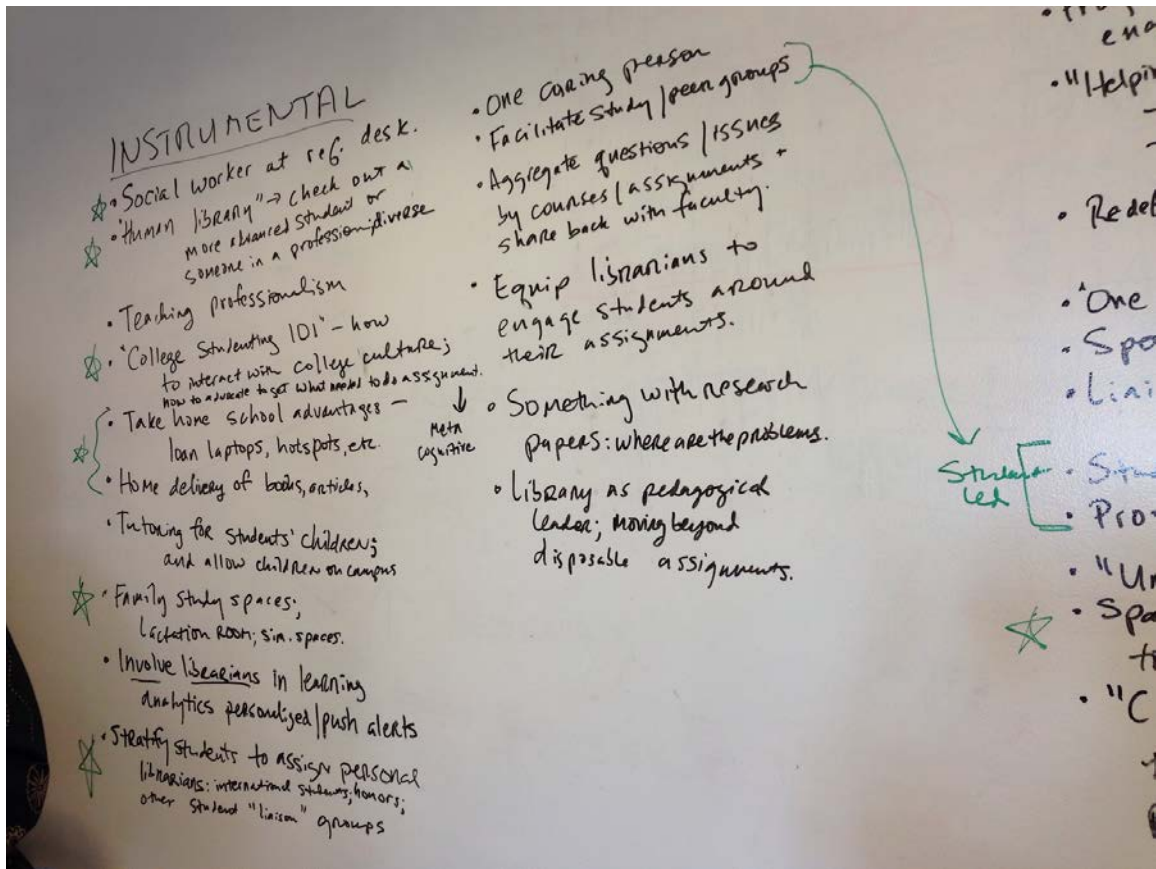 INSTRUMENTAL
• Social worker at ref. desk.
• "Human library" → check out a
more advanced student or
someone in a profession/diverse
• Teaching professionalism
• "College Studenting 101" – how
to interact with college culture;
how to advocate to get what needed to do assignment.
↓
Meta
cognitive
• Take home school advantages –
loan laptops, hotspots, etc.
• Home delivery of books, articles,
• Tutoring for students' children;
and allow children on campus
• Family study spaces;
lactation room; sim. spaces.
• Involve librarians in learning
analytics personalized/push alerts
• Stratify students to assign personal
librarians: international students; honors;
other student "liaison" groups
• One caring person
• Facilitate study/peer groups
• Aggregate questions/issues
by courses/assignments +
share back with faculty.
• Equip librarians to
engage students around
their assignments.
• Something with research
papers: where are the problems.
• Library as pedagogical
leader; moving beyond
disposable assignments.
Student
Led
ena
• "Helpin
• Redef
• "One
• Spo
• Liai
• Stu
• Pro
• "Un
• Spa
t
• "C